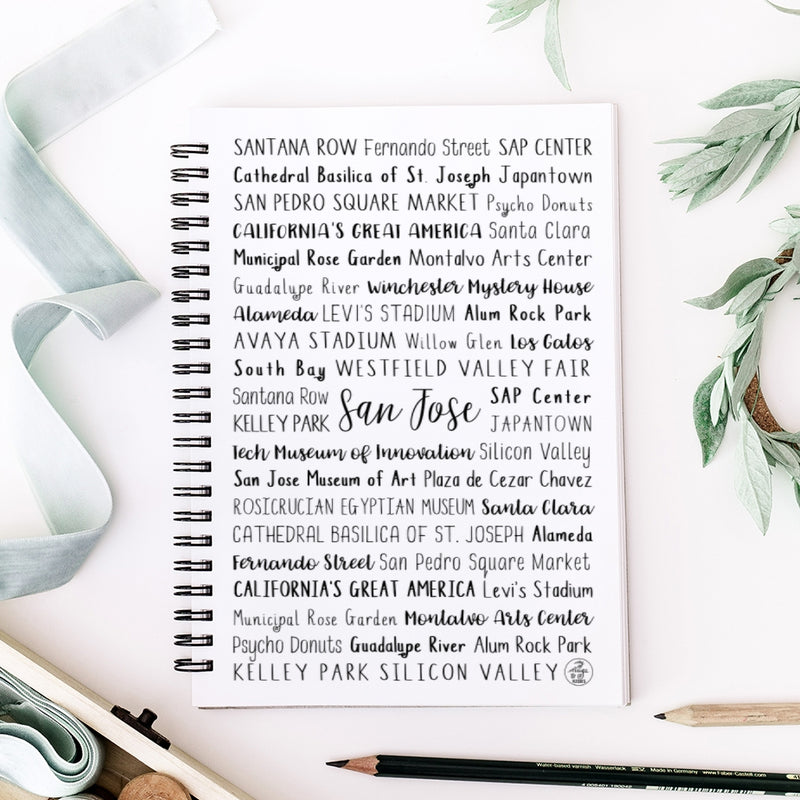 SANTANA ROW Fernando Street SAP CENTER
Cathedral Basilica of St. Joseph Japantown
SAN PEDRO SQUARE MARKET Psycho Donuts
CALIFORNIA'S GREAT AMERICA Santa Clara
Municipal Rose Garden Montalvo Arts Center
Guadalupe River Winchester Mystery House
Alameda LEVI'S STADIUM Alum Rock Park
AVAYA STADIUM Willow Glen Los Gatos
South Bay WESTFIELD VALLEY FAIR
Santana Row SAP Center
KELLEY PARK San Jose JAPANTOWN
Tech Museum of Innovation Silicon Valley
San Jose Museum of Art Plaza de Cezar Chavez
ROSICRUCIAN EGYPTIAN MUSEUM Santa Clara
CATHEDRAL BASILICA OF ST. JOSEPH Alameda
Fernando Street San Pedro Square Market
CALIFORNIA'S GREAT AMERICA Levi's Stadium
Municipal Rose Garden Montalvo Arts Center
Psycho Donuts Guadalupe River Alum Rock Park
KELLEY PARK SILICON VALLEY
Water-based varnish Wasserlack Made in Germany www.Faber-Castell.com